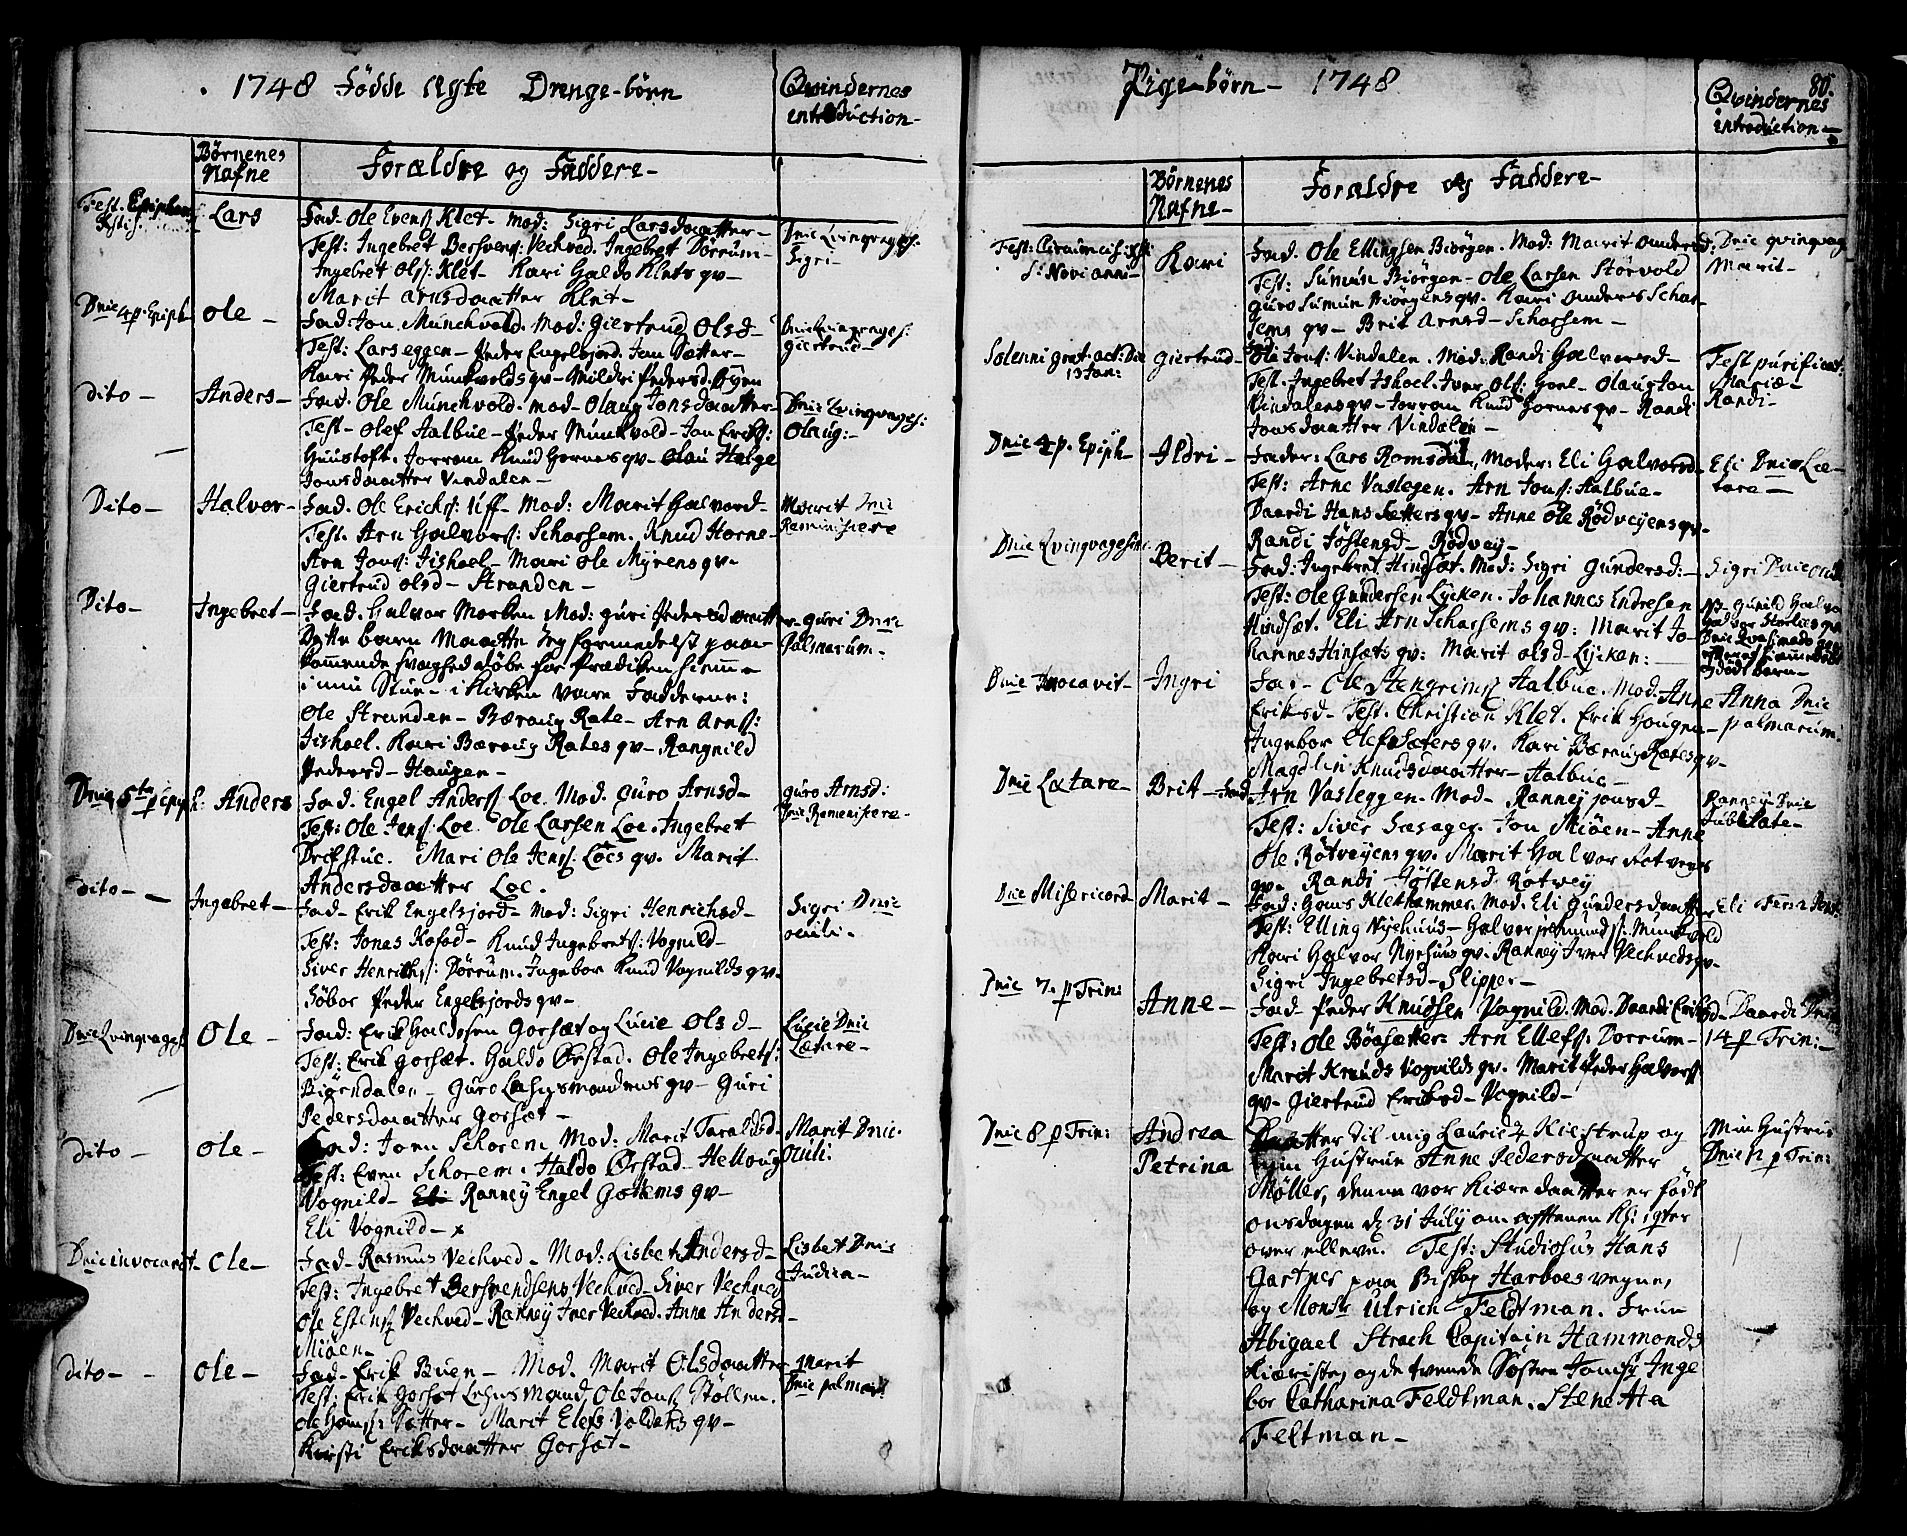 1748 Fødde Ægte Drenge-børn
Qvindernes
introduction-
Børnenes
Nafne
Forældre og Faddere-
Fest. Epiphan
Lars
Fad. Ole Evens. Klet- Mod: Sigri Larsdaatter-
Test: Ingebret Bersvens: Vechved. Ingebret Dørrum-
Ingebret Ols: Klet- Kari Haldo Klets qv-
Marit Arnsdaatter Klet-
Dnic Qvinqvages:
Sigri-
Dnic 4 p. Epiph
Ole -
Fad: Jon Munchvold. Mod: Giertrud Olsd-
Test: Lars eggen- Peder Engelsjord. Jon Sætter-
Kari Peder Munkvolds qv- Mildri Pedersd. Øyen
Dnic Qvinqvages:
Giertrud-
dito-
Anders-
Fad- Ole Munchvold. mod- Olaug Jonsdaatter-
Test- Olef Aalbue- Peder Munkvold- Jon Eriks:
Guustoft. Jorran Knud Hornes qv- Olau Helge
Jonsdaatter Vindalen-
Dnic Qvinqvages:
Olaug:-
Dito-
Halvor-
Fad. Ole Erichs: Uff- Mod: Marit Halvord-
Test. Arn Halvors: Schassem. Knud Horne-
Arn Jons: Jishoel- Mari Ole Myrens qv-
Giertrud Olsd- Stranden-
Marit Dnic
Reminisere
Dito-
Ingebret-
Fad. Halvor Morken Mod: Guri Pedersdaatter-
Dette barn Maatte jeg formedelst paa-
kommende svaghed døbe for Prædiken hiemme
i min Stue- i Kirken vare Fadderne:
Ole Stranden- Bæraug Rate- Arn Arns:
Jishoel. Kari Bæraug Rates qv- Rangnild
Pedersd- Haugen-
Guri Dnic
Palmarum-
Dnic 5te p Epiph:
Anders
Fad. Engel Anders. Loe. Mod. Guro Arnsd-
Test: Ole Jens: Loe. Ole Larsen Loe. Ingebret
Drifstue. Mari Ole Jens: Loes qv. Marit
Andersdaatter Loe.
Guro Arnsd:
Dnic Remenisere-
dito-
Ingebret-
Fad- Erik Engelsjord- Mod: Sigri Henrichsd-
Test: Jonas Kofod- Knud Ingebrets: Vognild-
Siver Henrichs: Dørrum. Ingebor Knud Vognilds qv-
Søbor Peder Engelsjords qv-
Sigri Dnic
oculi.
Dnic Qvinqvages
Ole -
Fad: Erik Haldosen Gorsæt og Lucie Olsd-
Test: Erik Gorsæt. Haldo Ørstad. Ole Ingebrets:
Biørndalen- Guro Lehnsmandens qv- Guri
Pedersdaatter Gorsæt-
Lucie Dnic
Lætare-
dito-
Ole-
Fad: Joen Schorem Mod: Marit Taraldsd-
Test: Even Schorem. Haldo Ørstad- Helloug
Vognild- Eli Ranney Engel Gottems qv-
Eli Vognild- x
Marit Dnic
Oculi.
Dnic invocavit-
Ole-
Fad- Rasmus Vechved- Mod: Lisbet Andersd-
Test: Ingebret Bersvendsens Vechved- Siver Vechved
Ole Estens. Vechved- Ranney Iver Vechved. Anna Andersd-
Miøen-
Lisbet Dnic
Judica-
dito- -
Ole-
Fad- Erik Buen- Mod. Marit Olsdaatter
Test: Erik Gorsæt Lehnsmand, Ole Jons. Støllen.
Ole Hans: Sætter- Marit Elefs Voldens qv-
Kirsti Eriksdaatter Gorsæt-
Marit
Dnic palmar.
Pige-børn- 1748
80.
Qvindernes
introduction-
Børnenes
Nafne-
Forældre og Faddere-
Fest: Circumcis: Xsti
S: Novi anni-
Kari
Fad. Ole Ellingsen Biørgen. Mod: Marit Andersd:
Test: Sumun Biørgen- Ole Larsen Størvold
Guro Sumun Biørgens qv. Kari Anders Schas-
sems qv- Brit Arnsd- Schassem-
Dnic qvinqvag
Marit-
Solenni grat: act: Die
13 Jan:
Giertrud-
Ole Jons: Vindalen. Mod: Randi Halvorsd-
Test. Ingebret Ishoel. Iver Ols: Hoel- Olaug Jon
Vindalens qv- Jorran Knud Hornes qv- Randi
Jonsdaatter Vindalen-
Fest purificat:
Mariæ-
Randi-
Dnic 4 p. Epiph-
Ildri-
Fader: Lars Romsdal, Moder: Eli Halvorsd-
Test: Arne Vaslegen. Arn Jons: Aalbue-
Daardi Hans Sætters qv- Anne Ole Rødveyens qv-
Randi Jøstensd- Rødvey-
Eli Dnic Læ-
tare-
Dnic Qvinqvagesim:
Berit-
Fad: Ingebret Hindsæt. Mod: Sigri Gundersd:-
Test: Ole Gundersen Lycken. Johannes Endresen
Hindsæt. Eli Arn Schassems qv: Marit Jo-
hannes Hinsæts qv: Marit Olsd- Lycken:
Sigri Dnic oculi
NB- Gunild Halvo
Halvor Storlies qv.
Dnic Qvasimodo gen
efter at hiemme død
dødt barn-
Dnic Invocavit-
Ingri
Fad- Ole Stengrims. Aalbue. Mod. Anne
Eriksd- Test. Christian Klet. Erik Hougne-
Ingebor Elef Sæters qv. Kari Bæraug Rates qv-
Magdlin Knudsdaatter- Aalbue-
Anna Dnic
palmarum.
Dnic Lætare-
Brit-
Fad Arn Vasleggen- Mod- Ranney jonsd-
Test: Siver Sæsager. Jon Miøen- Anne
Ole Røtveyens qv. Marit Halvor Røtveys
qv- Randi Jøstensd Røtvey
Ranney Dnic
Jubilate-
Dnic Misericord
Marit-
Fad: Hans Klethammer. Mod: Eli Gundersdaatter
Test: Elling Nyehuus- Halvor jermunds: Munkvold
Kari Halvor Nyehuus qv. Ranney Iver Vechveds qv-
Sigri Ingebretsd- Slipper-
Dnic 7. p Trin:
Anne-
Fad- Peder Knudsen Vognild. Mod. Daardi Eriksd-
Test: Ole Bøasætter: Arn Ellefs: Dorrum-
Marit Knuds Vognilds qv. Marit Peder Halvors:
qv- Giertrud Eriksd- Vognild-
Daardi Dnic
14 p Trin:-
Dnic 8 p Trin:
Andrea
Petrina
Daatter til mig Lauridz Kiestrup og
min Hustrue Anne Pedersdaatter
Møller, denne vor kiære daatter er født
onsdagen d 31 July om afftenen Kl: 1 qter
over elleve. Test: Studiosus Hans
Gartner paa Biskop Harboes vegne,
og Monsr Ulrich Feldtman. Frue
Abigael Strach Capitain Hammonds
kiæriste, og de tvende Søstre Jomfr Inge
bor Catharina Feldtman. Stenetta
Feltman-
Min Hustrue
Dnic 12 p Trin: